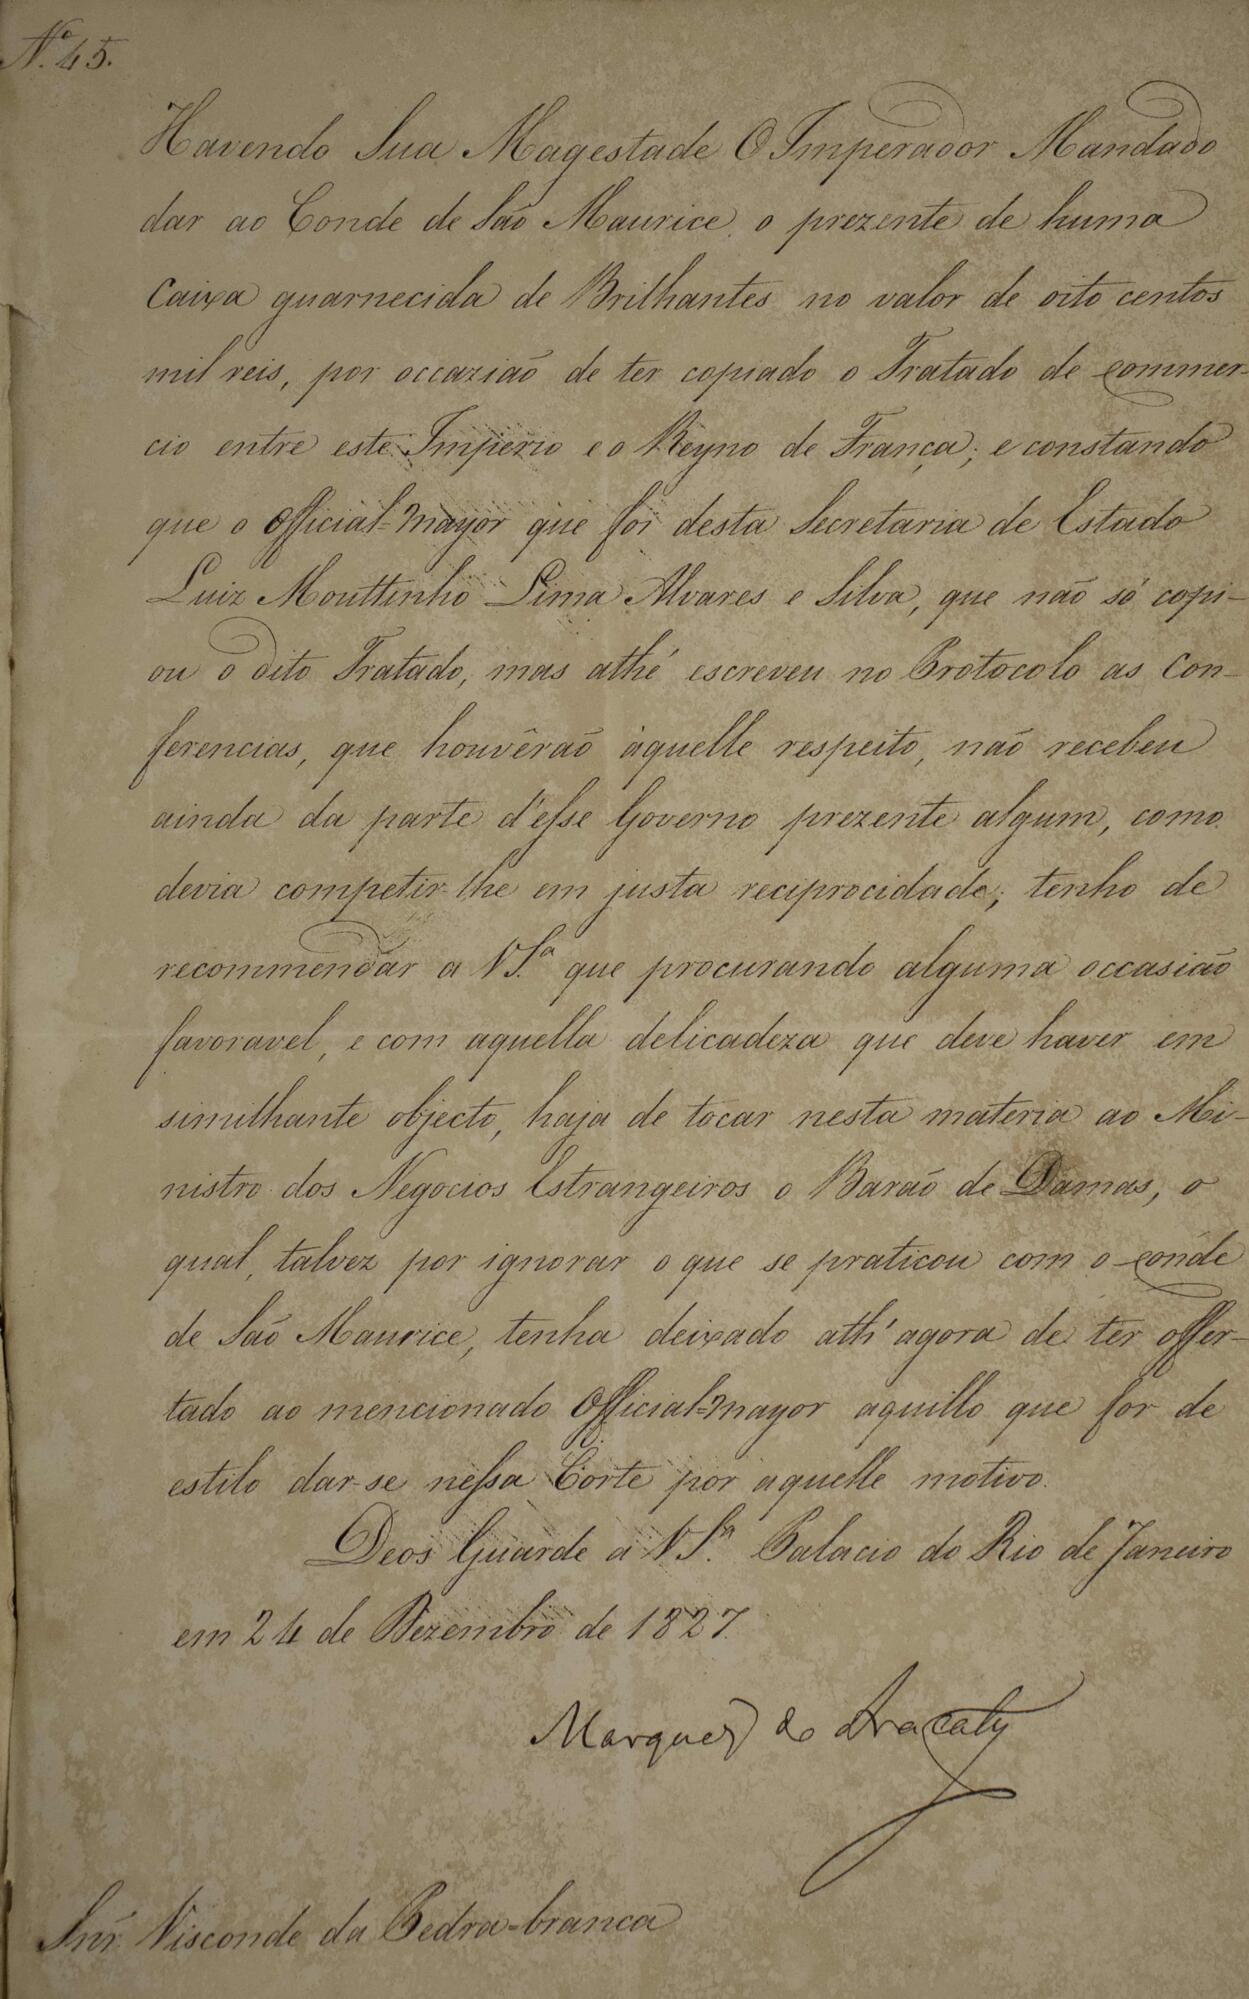 Nº 45.
Havendo Sua Magestade O Imperador Mandado
dar ao Conde de São Maurice o prezente de huma
Caixa guarnecida de Brilhantes no valor de oito centos
mil reis, por occazião de ter copiado o Tratado de commer-
cio entre este Imperio e o Reyno de França; e constando
que o Official=mayor que foi desta Secretaria de Estado
Luiz Mouttinho Lima Alvares e Silva, que não só copi-
ou o dito Tratado, mas athé escreveu no Protocolo as Con-
ferencias, que houvêrão àquelle respeito, não recebeu
ainda da parte d'esse Governo prezente algum, como
devia competir-lhe em justa reciprocidade; tenho de
recommendar a V S.ª que procurando alguma occasião
favoravel, e com aquella delicadeza que deve haver em
similhante objecto, haja de tocar nesta materia ao Mi-
nistro dos Negocios Estrangeiros o Barão de Damas, o
qual, talvez por ignorar o que se praticou com o Conde
de São Maurice, tenha deixado ath'agora de ter offer-
tado ao mencionado Official=mayor aquillo que for de
estilo dar-se nessa Corte por aquelle motivo.
Deos Guarde a V S.ª Palacio do Rio de Janeiro
em 24 de Dezembro de 1827.
Marquez de Aracaty
Snr. Visconde da Pedra=branca